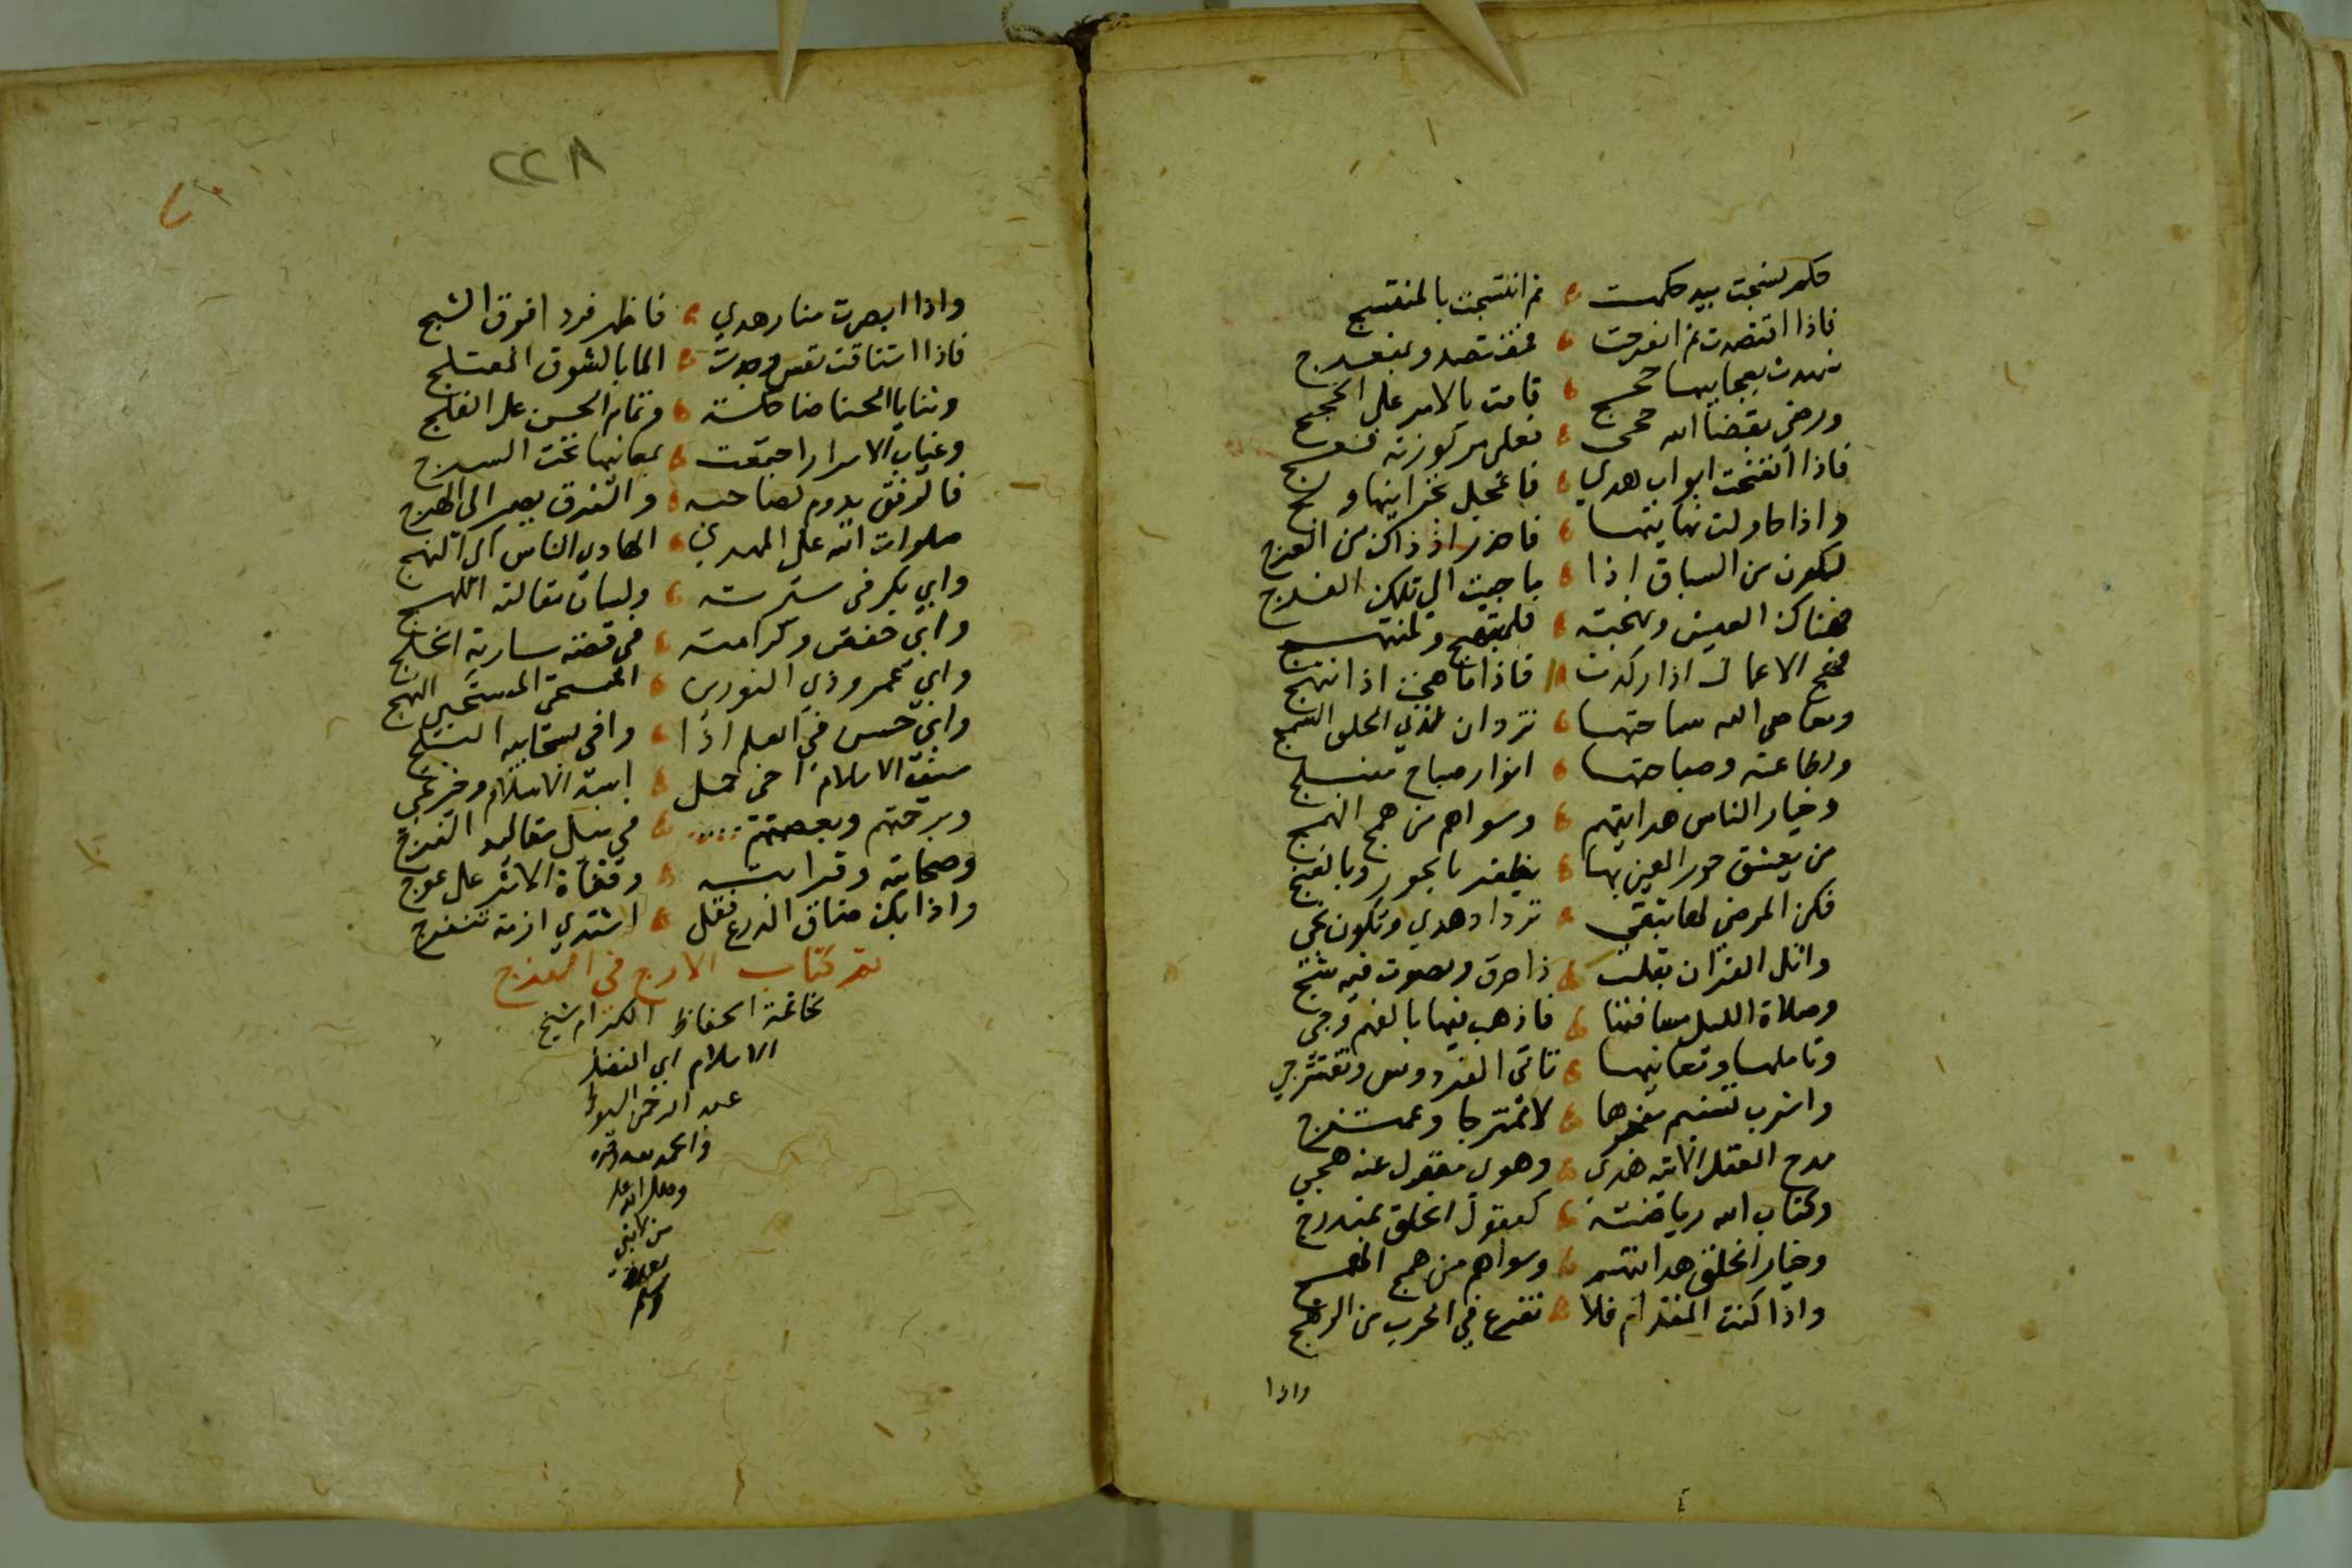 حكم نسجت بيد حكمت ثم انتسجت بالمنتسج
فاذا اقتصدت ثم انفرجت فمقتصد وبمنعرج
شهدت بعجايبها حجج قامت بالامر على الحجج
ورضى بقضا الله حجى فعلى مركوزته فعج
فاذا انفتحت ابواب هدى فاعجل لخزاينها ولج
واذا حاولت نهايتها فاحذر اذ ذاك من العرج
لتكون من السباق اذا ما جيت الى تلك الفرج
فهناك العيش وبهجته فلمبتهج ولمنتهج
فهج الاعمال اذا ركدت فاذا ما هجت اذا تهج
ومعاصى الله سماجتها تزدان لذي الخلق السمج
ولطاعته وصباحتها انوار صباح منبلج
وخيار الناس هداتهم وسواهم من همج الهمج
من يعشق حور العين بها يظفر بالحور وبالغنج
فكن المرضى لها بتقى تزداد هدى وتكون نجى
واتل القران بقلب ذا حرق وبصوت فيه شج
وصلاة الليل مسافتها فاذهب فيها بالفهم وجى
وتاملها ومعانيها تاتى الفردوس وتفترجي
واشرب تسنيم مفجرها لا ممتزجا وبممتزج
مدح العقل الاتيه هدى وهوى متول عنه هجي
وكتاب الله رياضته كعقول الخلق بمندرج
وخيار الخلق هداتهم وسواهم من همج الهمج
واذا كنت المقدام فلا تفزع في الحرب من الرهج
واذا
٢٢٨
واذا ابصرت منار هدي فاظهر فردا فوق الثبج
فاذا اشتاقت نفس وجدت الما بالشوق المعتلج
وثنايا الحسنا ضاحكة وتمام الحسن على الفلج
وغياب الاسرار اجتمعت بمعانيها تحت السرج
فالرفق يدوم لصاحبه والخرق يصير الى الهرج
صلوات الله على المهدي الهادي الناس الى النهج
وابي بكر في سيرته ولسان مقالته اللهج
وابي حفص وكرامته في قصة سارية الخلج
وابي عمرو ذي النورين المستحى المستحيى البهج
وابي حسن في العلم اذا وافى بسحايبه الخلج
وصحابته وقرابته وقفاة الاثر على عوج
واذا بك ضاق الذرع فقل اشتدي ازمة تنفرجي
تم كتاب الارج في الفرج
لخاتمة الحفاظ الكرام شيخ
الاسلام ابي الفضل
عبد الرحمن السيوطي
والحمد لله وحده
وصلى الله على
من لا نبي
بعده
وسلم